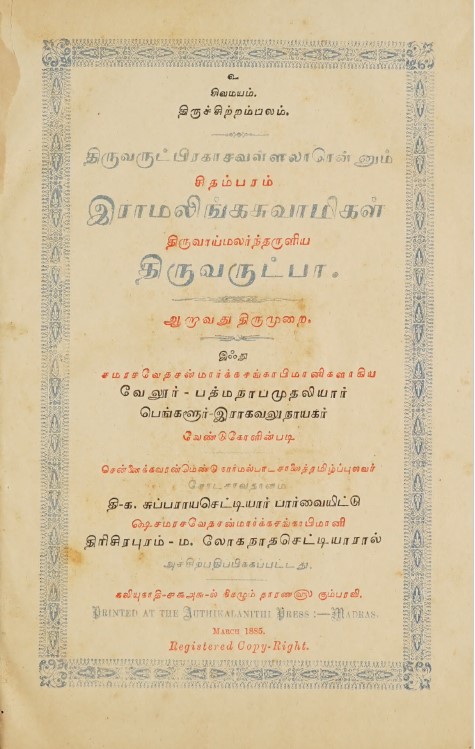 உ
சிவமயம்.
திருச்சிற்றம்பலம்.
திருவருட்பிரகாசவள்ளலாரென்னும்
சிதம்பரம்
இராமலிங்கசுவாமிகள்
திருவாய்மலர்ந்தருளிய
திருவருட்பா.
ஆறாவது திருமுறை.
இஃது
சமரசவேதசன்மார்க்கசங்காபிமானிகளாகிய
வேலூர் - பத்மநாபமுதலியார்
பெங்களூர்-இராகவலுநாயகர்
வேண்டுகோளின்படி
சென்னைக்கவரன்மெண்டுநார்மல்பாடசாலைத்தமிழ்ப்புலவர்
சோடசாவதானம்
தி-க. சுப்பராயசெட்டியார் பார்வையிட்டு
ஷெ சமரசவேதசன்மார்க்கசங்காபிமானி
திரிசிரபுரம் - ம. லோகநாதசெட்டியாரால்
அச்சிற்பதிப்பிக்கப்பட்டது.
கலியுகாதி-௪௯௮௬-ல் நிகழும் தாரண௵ கும்பரவி.
PRINTED AT THE AUTHIKALANITHI PRESS :—MADRAS.
MARCH 1885.
Registered Copy-Right.